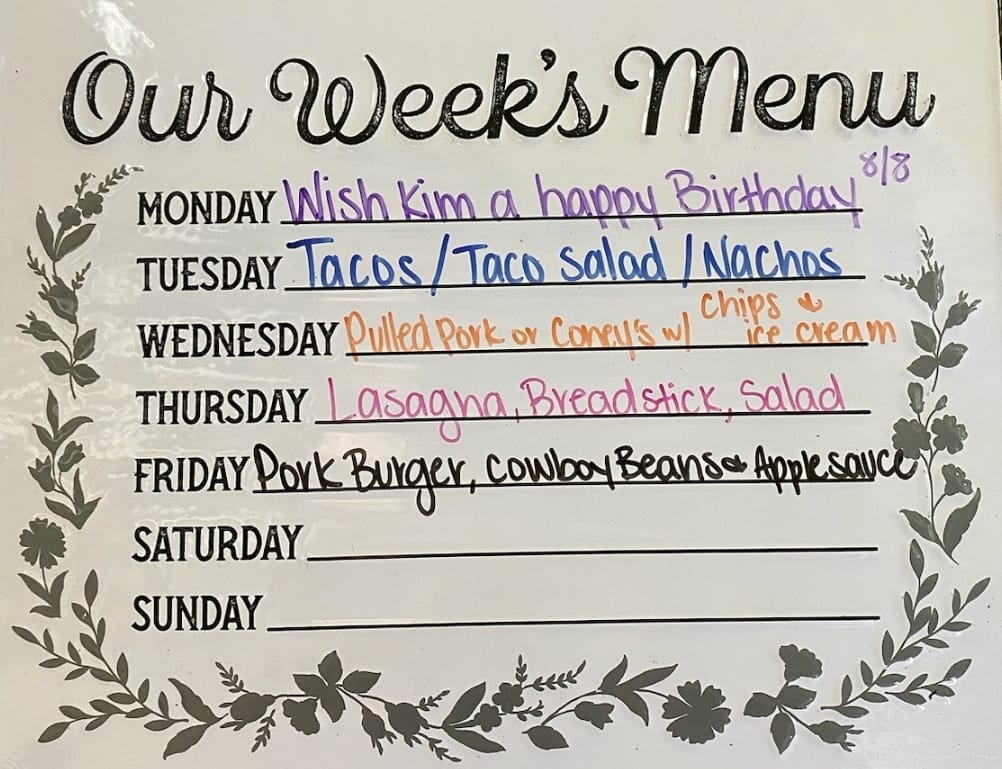 Our Week's Menu
MONDAY Wish Kim a happy Birthday 8/8
TUESDAY Tacos/Taco Salad/Nachos
WEDNESDAY Pulled Pork or Coney's w/ Chips & ice cream
THURSDAY Lasagna, Breadstick, Salad
FRIDAY Pork Burger, Cowboy Beans & Applesauce
SATURDAY
SUNDAY